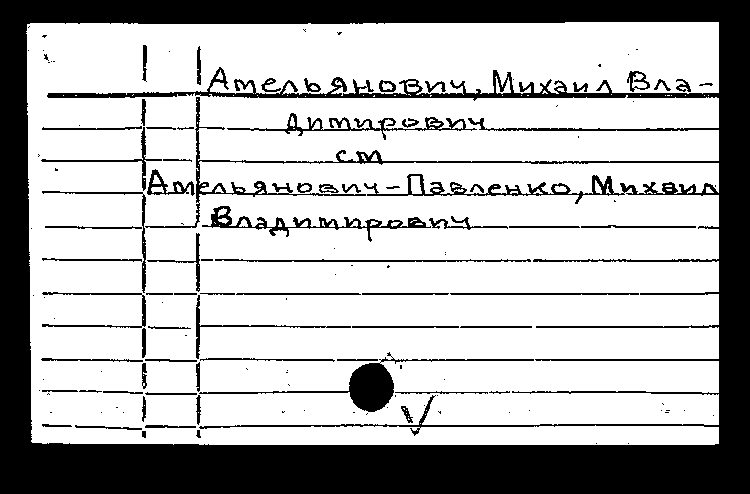 Амельянович, Михаил Вла-
димирович
см
Амельянович-Павленко, Михаил
Владимирович